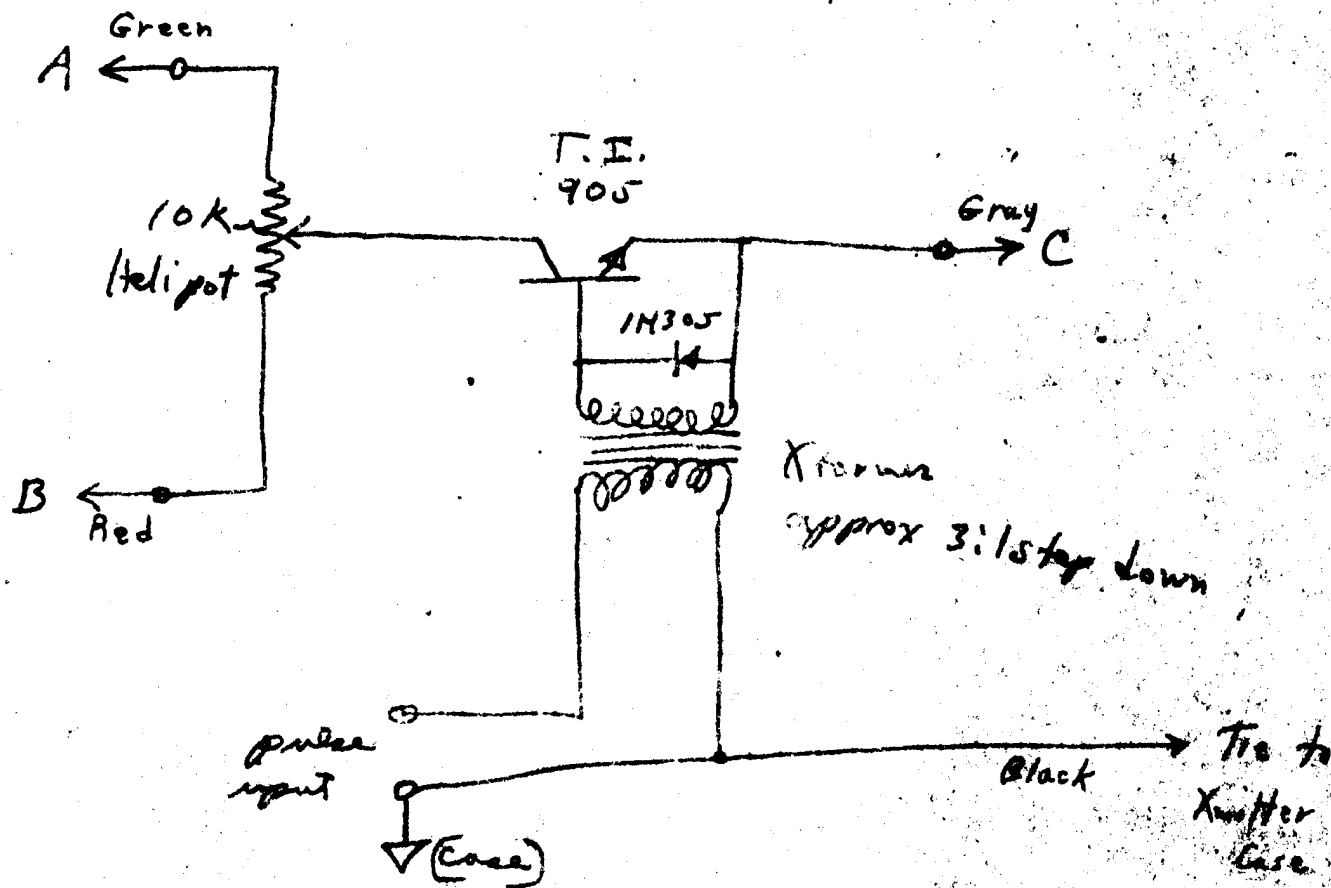 Green
A
T.I.
905
10K
Helipot
Gray
C
1N305
B
Red
Xformer
approx 3:1 step down
pulse
input
(Case)
Black
Tie to
Xmitter
Case